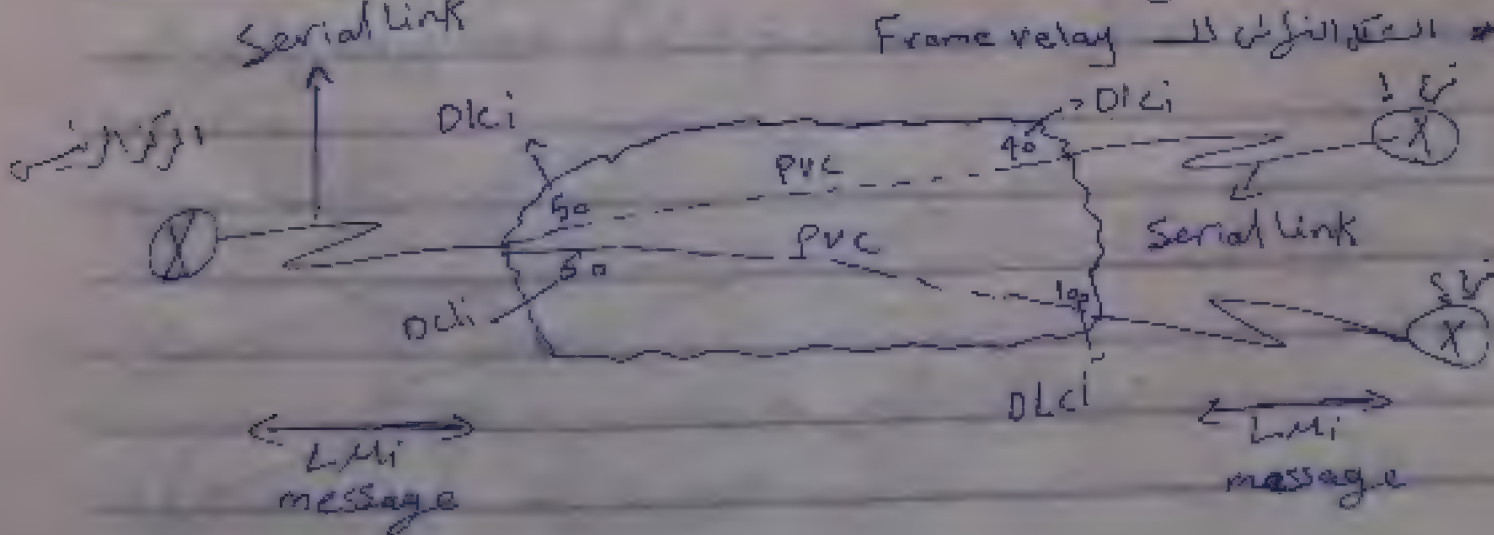 Serial Link
* الشكل التزامني للـ Frame relay
المركز الرئيسي
Dlci
Dlci
90
PVC
50
PVC
60
Serial Link
100
Dcli
DLCi
LMi
message
LMi
message
X
X
X